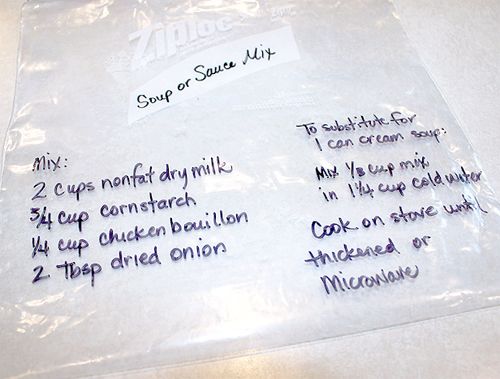 Ziploc
Soup or Sauce Mix
Mix:
2 cups nonfat dry milk
3/4 cup cornstarch
1/4 cup chicken bouillon
2 Tbsp dried onion
To substitute for
1 can cream soup:
Mix 1/3 cup mix
in 1 1/4 cup cold water
Cook on stove until
thickened or
Microwave